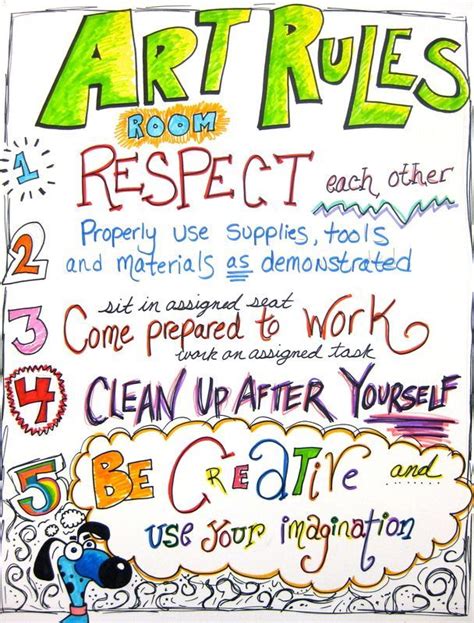 ART RULES
ROOM
1 RESPECT each other
2 Properly use supplies, tools
and materials as demonstrated
sit in assigned seat
3 Come prepared to Work
work on assigned task
4 CLEAN UP AFTER YOURSELF
5 BE CREATIVE and
use your imagination